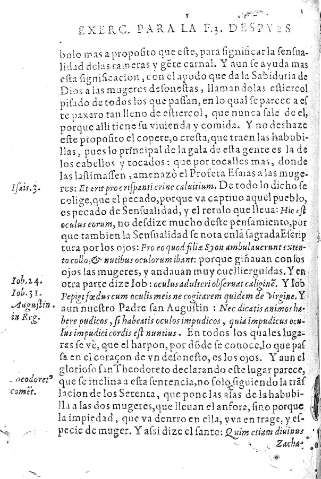 EXERC. PARA LA F.3. DESPVES
bolo mas a proposito que este, para significar la sensua-
lidad de las rameras y gẽte carnal. Y aun se ayuda mas
esta significacion, con el apodo que da la Sabiduria de
Dios a las mugeres desonestas, llamandolas estiercol
pisado de todos los que passan, en lo qual se parece a es-
te paxaro tan lleno de estiercol, que nunca sale de el,
porque alli tiene su viuienda y comida. Y no deshaze
este proposito el copete, o cresta, que traen las habubi-
llas, pues lo principal de la gala de esta gente es la de
los cabellos y tocados: que por tocalles mas, donde
Isaie. 3.
las lastimassen, amenaçò el Profeta Esaias a las muge-
res: Et erit pro crispanti crine caluitium. De todo lo dicho se
colige, que el pecado, porque va captiuo aquel pueblo,
es pecado de Sensualidad, y el retulo que lleua: Hic est
oculus eorum, no desdize mucho deste pensamiento, por
que tambien la Sensualidad se nota en la sagrada Escrip
tura por los ojos: Pro eo quod filiæ Syon ambulauerunt exten-
to collo, & nutibus oculorum ibant: porque guiñauan con los
ojos las mugeres, y andauan muy cuellierguidas. Y en
Iob. 24.
otra parte dize Iob: oculus adulteri obseruat caliginẽ. Y Iob
Iob. 31.
Pepigi fœdus cum oculis meis ne cogitarem quidem de Virgine. Y
Augustin.
in Reg.
aun nuestro Padre san Augustin: Nec dicatis animos ha-
bere pudicos, si habeatis oculos impudicos, quia impudicus ocu-
lus impudici cordis est nuntius. En todos los quales luga-
res se vè, que el harpon, por dõde se conoce, lo que pas
sa en el coraçon de vn desonesto, es los ojos. Y aun el
Theodoret.
comẽt.
glorioso san Theodoreto declarando este lugar parece,
que se inclina a esta sentencia, no solo siguiendo la trãs
lacion de los Setenta, que pone las alas de la habubi-
lla a las dos mugeres, que lleuan el anfora, sino porque
la impiedad, que va dentro en ella, va en trage, y es-
pecie de muger. Y assi dize el santo: Quim etiam diuinus
Zacha-